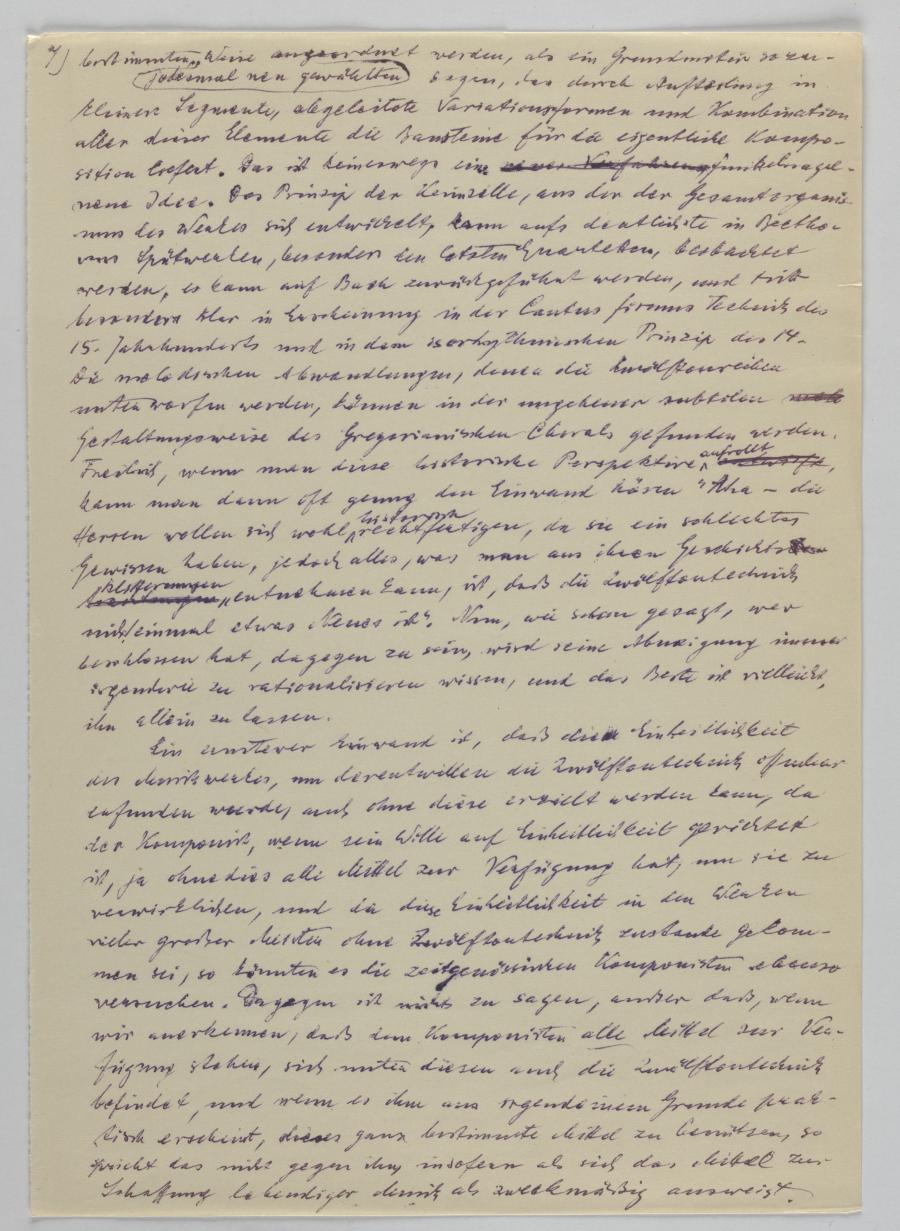 7) bestimmten Weise angeordnet werden, als ein Grundmotiv sozu-
jedesmal neu gewählten sagen, das durch Aufteilung in
kleinere Segmente, abgeleitete Variationsformen und Kombination
aller dieser Elemente die Bausteine für die eigentliche Kompo-
sition liefert. Das ist keineswegs eine neues Verfahren funkelnagel-
neue Idee. Das Prinzip der Keimzelle, aus der der Gesamtorganis-
mus des Werkes sich entwickelt, kann aufs deutlichste in Beetho-
vens Spätwerken, besonders den letzten Quartetten, beobachtet
werden, es kann auf Bach zurückgeführt werden, und tritt
besonders klar in Erscheinung in der Cantus firmus Technik des
15. Jahrhunderts und in dem isorhythmischen Prinzip des 14.
Die melodischen Abwandlungen, denen die Zwölftonreihen
unterworfen werden, können in der ungeheuer subtilen
Gestaltungsweise des Gregorianischen Chorals gefunden werden.
Freilich, wenn man diese historische Perspektive aufrollt,
kann man dann oft genug den Einwand hören "Aha – die
Herren wollen sich wohl historisch rechtfertigen, da sie ein schlechtes
Gewissen haben, jedoch alles, was man aus ihren Geschichts
klitterungen entnehmen kann, ist, daß die Zwölftontechnik
nicht einmal etwas Neues ist". Nun, wie schon gesagt, wer
beschlossen hat, dagegen zu sein, wird seine Abneigung immer
irgendwie zu rationalisieren wissen, und das Beste ist vielleicht,
ihn allein zu lassen.
Ein ernsterer Einwand ist, daß die Einheitlichkeit
des Musikwerkes, um derentwillen die Zwölftontechnik offenbar
erfunden wurde, auch ohne diese erzielt werden kann, da
der Komponist, wenn sein Wille auf Einheitlichkeit gerichtet
ist, ja ohnedies alle Mittel zur Verfügung hat, um sie zu
verwirklichen, und da diese Einheitlichkeit in den Werken
vieler großer Meister ohne Zwölftontechnik zustande gekom-
men sei, so könnten es die zeitgenössischen Komponisten ebenso
versuchen. Dagegen ist nichts zu sagen, außer daß, wenn
wir anerkennen, daß dem Komponisten alle Mittel zur Ver-
fügung stehen, sich unter diesen auch die Zwölftontechnik
befindet, und wenn es ihm aus irgendeinem Grunde prak-
tisch erscheint, dieses ganz bestimmte Mittel zu benützen, so
spricht das nicht gegen ihn, insofern als sich das Mittel zur
Schaffung lebendiger Musik als zweckmäßig ausweist.